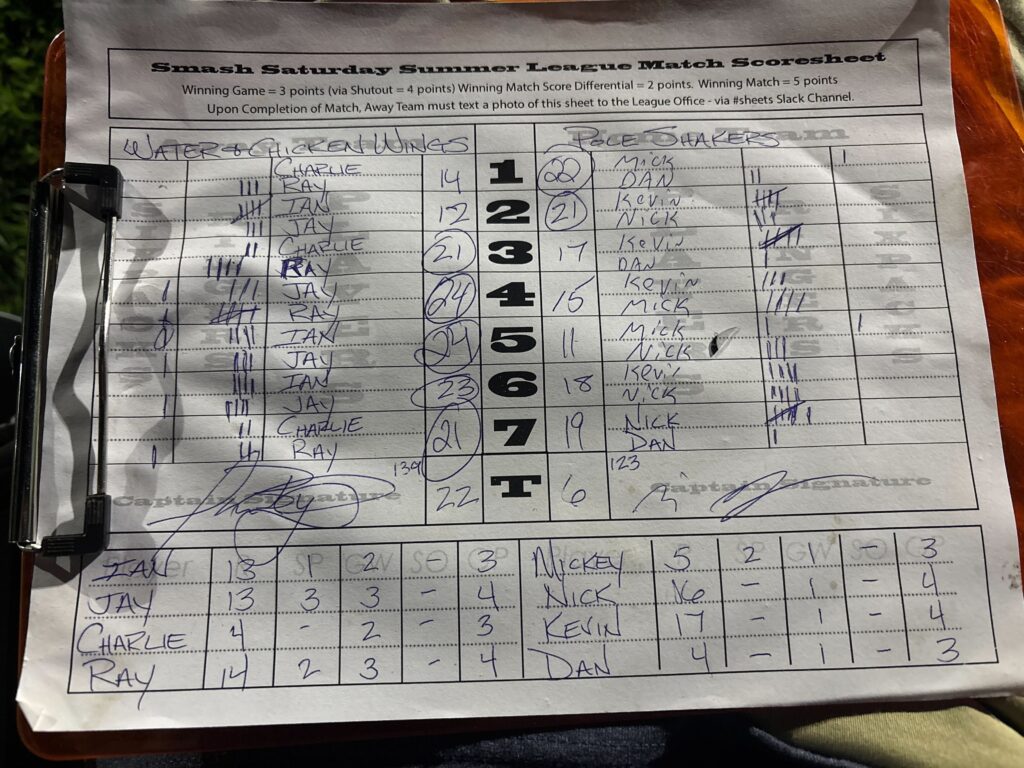 Smash Saturday Summer League Match Scoresheet
Winning Game = 3 points (via Shutout = 4 points) Winning Match Score Differential = 2 points. Winning Match = 5 points
Upon Completion of Match, Away Team must text a photo of this sheet to the League Office - via #sheets Slack Channel.
WATER & CHICKEN WINGS POLE SHAKERS
CHARLIE 14 1 22 MICK
RAY DAN
IAN 12 2 21 KEVIN
JAY NICK
CHARLIE 21 3 17 KEVIN
RAY DAN
JAY 24 4 15 KEVIN
RAY MICK
IAN 24 5 11 MICK
JAY NICK
IAN 23 6 18 KEVIN
JAY NICK
CHARLIE 21 7 19 NICK
RAY DAN
139 123
Captain Signature 22 T 6 Captain Signature
IAN 13 SP 1 GW 2 SO GP 3 MICKEY 5 SP 2 GW 1 SO - GP 3
JAY 13 3 3 - 4 NICK 16 - 1 - 4
CHARLIE 4 - 2 - 3 KEVIN 17 - 1 - 4
RAY 14 2 3 - 4 DAN 4 - 1 - 3